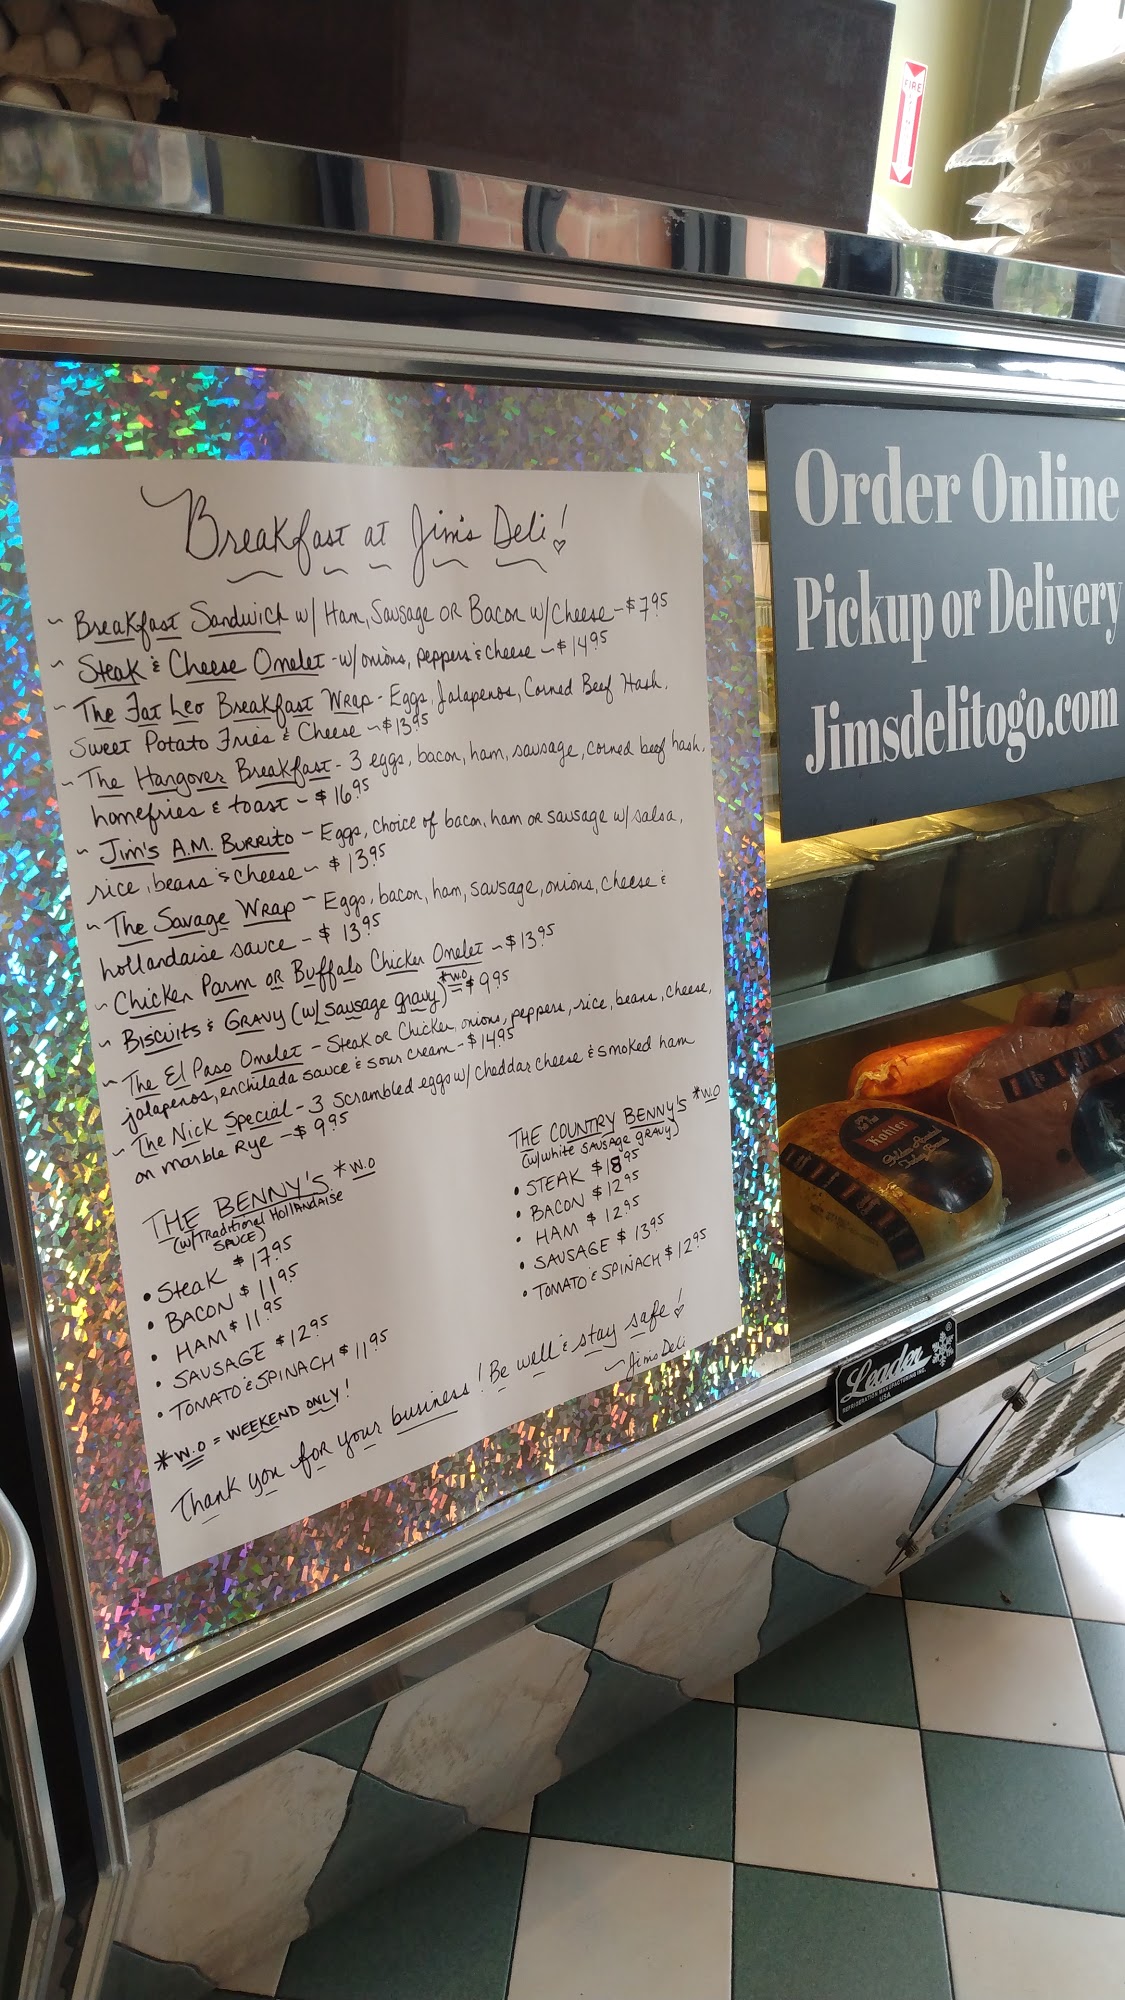 FIRE
Breakfast at Jim's Deli!
~ Breakfast Sandwich w/ Ham, Sausage OR Bacon w/ Cheese ~ $7.95
~ Steak & Cheese Omelet - w/ onions, peppers & cheese ~ $14.95
~ The Fat Leo Breakfast Wrap - Eggs, Jalapenos, Corned Beef Hash,
Sweet Potato Fries & Cheese ~ $13.95
~ The Hangover Breakfast - 3 eggs, bacon, ham, sausage, corned beef hash,
homefries & toast ~ $16.95
~ Jim's A.M. Burrito ~ Eggs, choice of bacon, ham or sausage w/ salsa,
rice, beans & cheese ~ $13.95
~ The Savage Wrap ~ Eggs, bacon, ham, sausage, onions, cheese &
hollandaise sauce ~ $13.95
~ Chicken Parm OR Buffalo Chicken Omelet ~ $13.95
~ Biscuits & Gravy (w/ sausage gravy) *W.O ~ $9.95
~ The El Paso Omelet - Steak or Chicken, onions, peppers, rice, beans, cheese,
jalapenos, enchilada sauce & sour cream - $14.95
~ The Nick Special - 3 Scrambled eggs w/ cheddar cheese & smoked ham
on marble Rye - $9.95
THE BENNY'S *W.O
(w/ Traditional HOLLANDAISE
SAUCE)
• Steak $17.95
• BACON $11.95
• HAM $11.95
• SAUSAGE $12.95
• TOMATO & SPINACH $11.95
THE COUNTRY BENNY'S *W.O
(w/ white SAUSAGE GRAVY)
• STEAK $18.95
• BACON $12.95
• HAM $12.95
• SAUSAGE $13.95
• TOMATO & SPINACH $12.95
*W.O = WEEKEND ONLY!
Thank you for your business! Be well & stay safe!
~ Jims Deli
Order Online
Pickup or Delivery
Jimsdelitogo.com
Kohler
Leader
REFRIGERATION MANUFACTURING INC.
USA